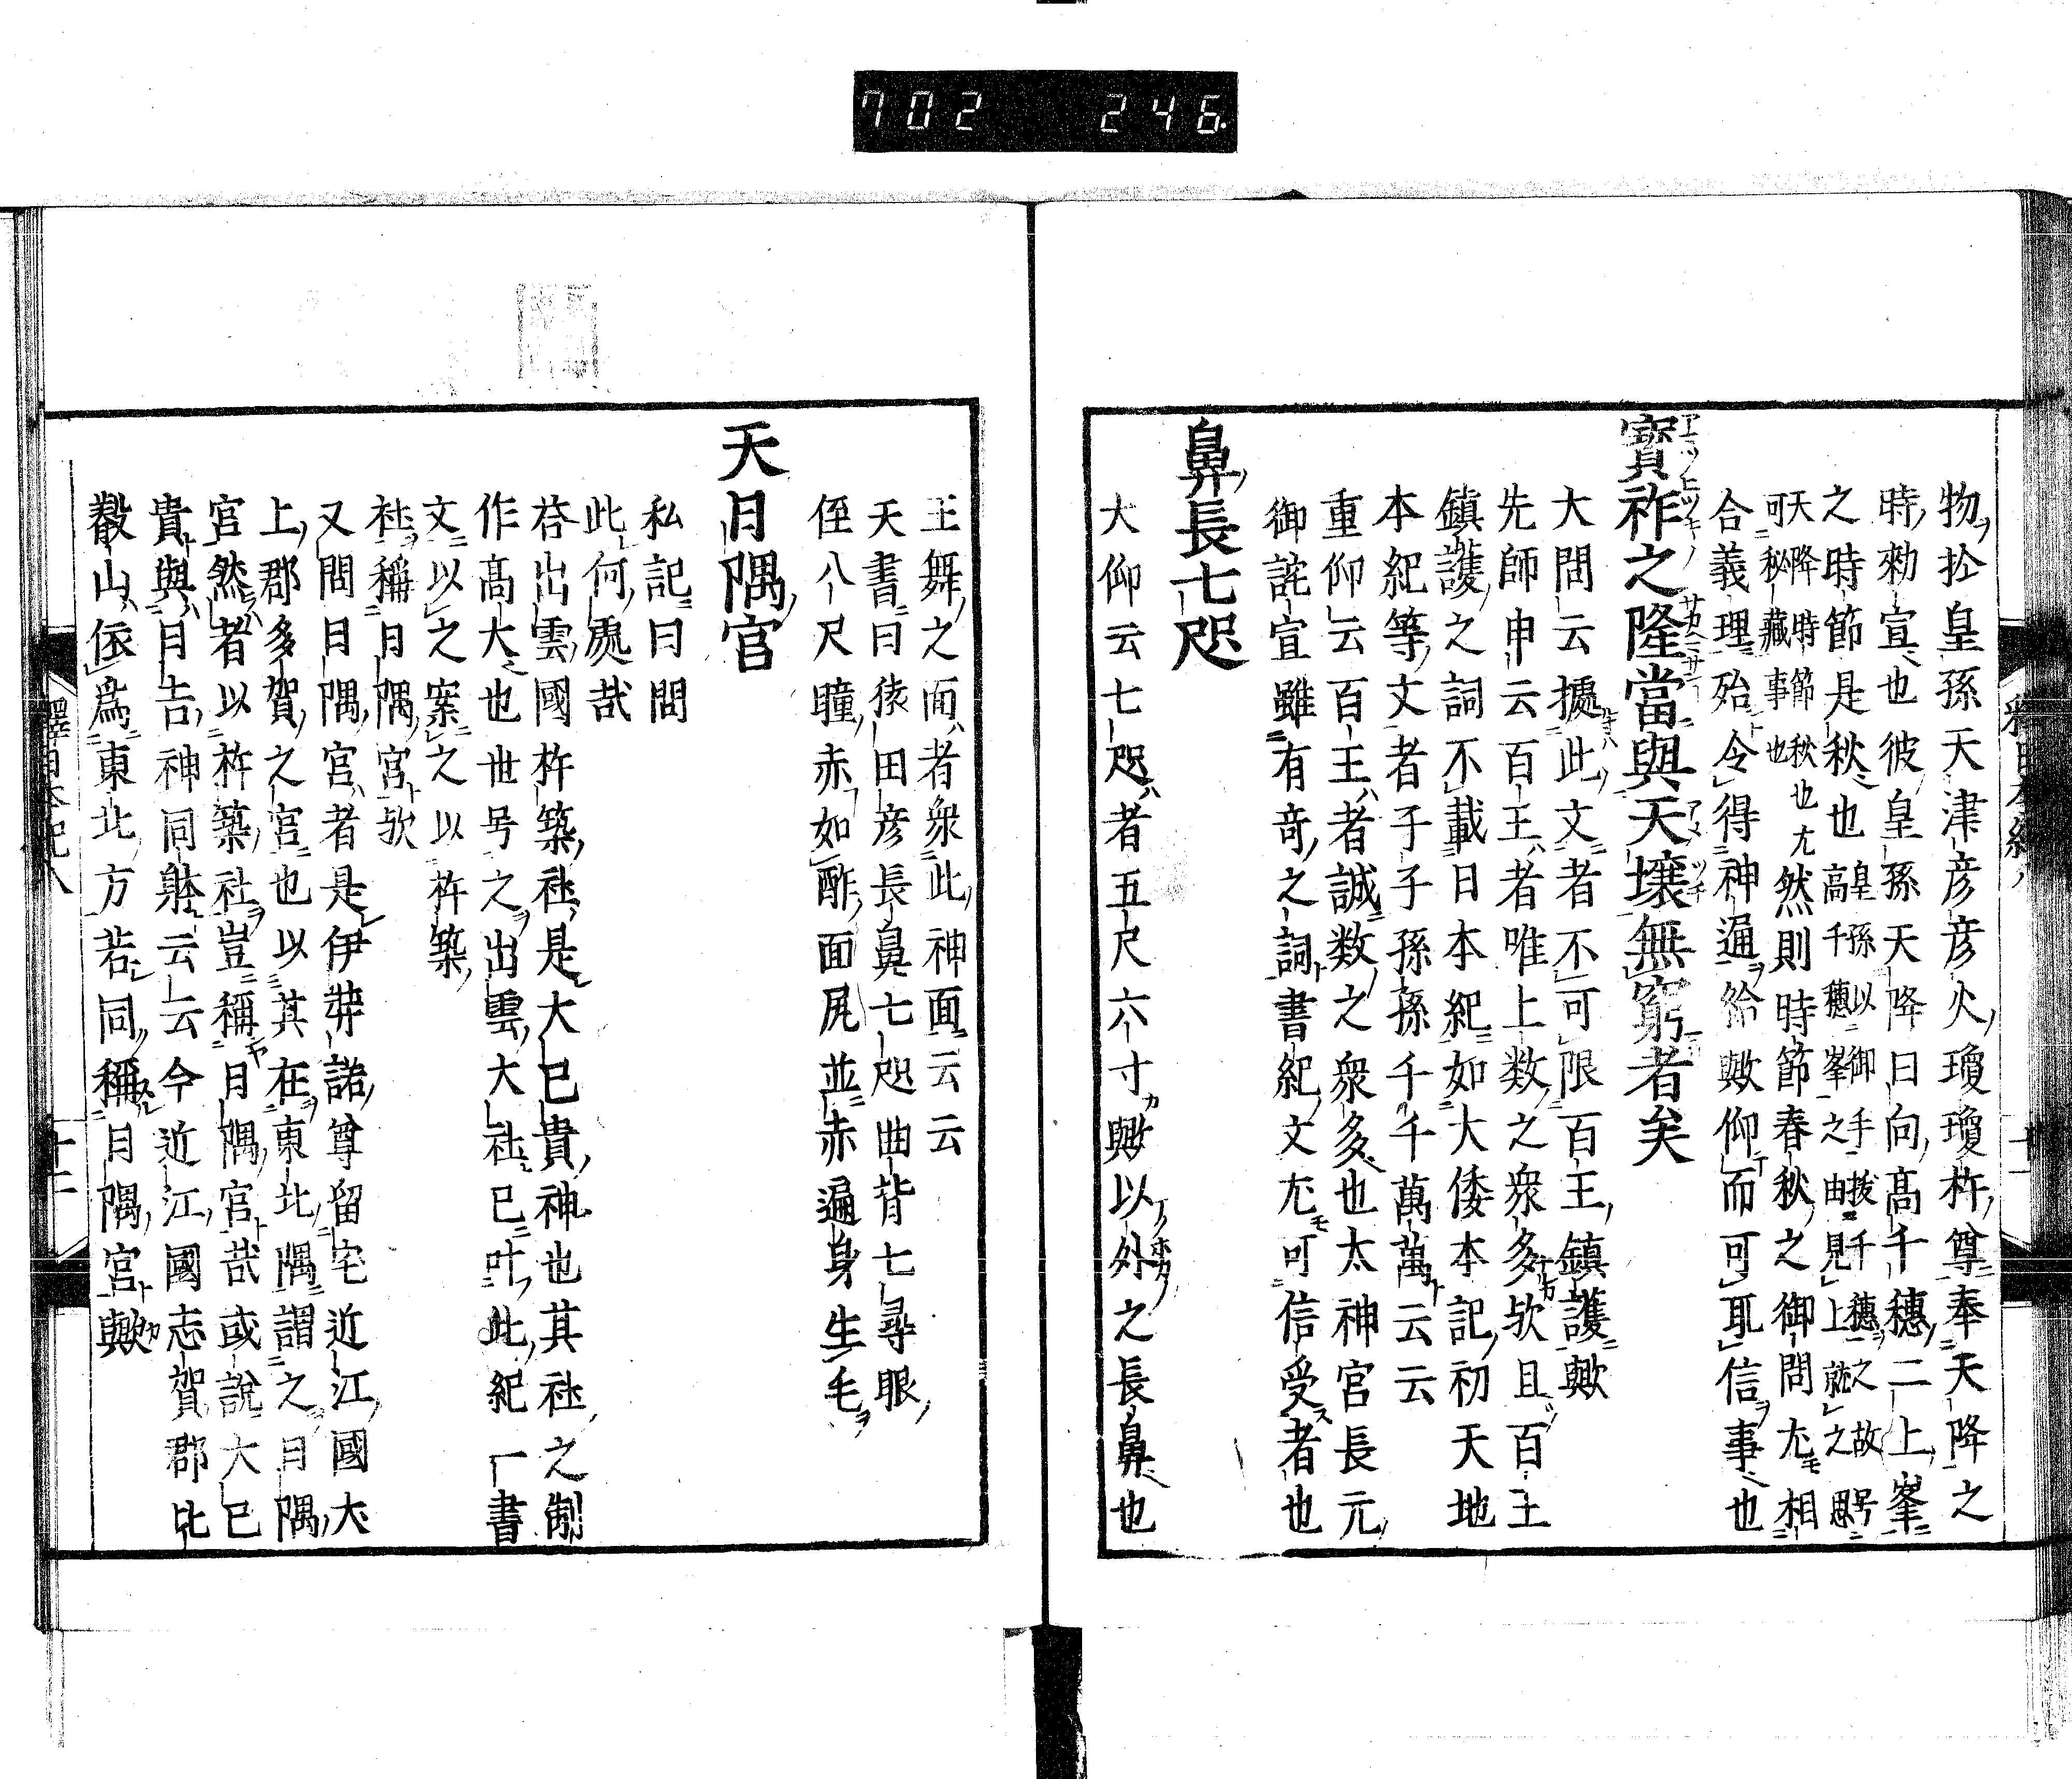 702 246
物於皇孫天津彦彦火瓊瓊杵尊奉天降之
時勅宣也彼皇孫天降日向高千穗二上峯
之時節是秋也皇孫以御手拔千穗之故号
高千穗峯之由見上就之思
天降時節秋也尤
可秘藏事也
然則時節春秋之御問尤相
合義理殆令得神通給歟仰而可取信事也
寶祚之隆當與天壤無窮者矣
大問云據此文者不可限百王鎮護歟
先師申云百王者唯上数之衆多欤且百王
鎮護之詞不載日本紀如大倭本記初天地
本紀等文者子子孫孫千千萬萬云云
重仰云百王者誠数之衆多也太神宮長元
御詫宣雖有竒之詞書紀文尤可信受者也
鼻長七咫
大仰云七咫者五尺六寸歟以外之長鼻也
王舞之面者衆此神面云云
天書曰猿田彦長鼻七咫曲背七尋眼
徑八尺瞳赤如酢面尻並赤遍身生毛
天日隅宮
私記曰問
此何處哉
荅出雲國杵築社是大己貴神也其社之制
作髙大也世号之出雲大社已叶此紀一書
文以之案之以杵築
社稱日隅宮欤
又問日隅宮者是伊弉諾尊留宅近江國犬
上郡多賀之宮也以其在東北隅謂之日隅
宮然者以杵築社豈稱日隅宮哉或說大己
貴與日吉神同躰云云今近江國志賀郡比
叡山依爲東北方若同稱日隅宮歟
釋日本紀八
十二